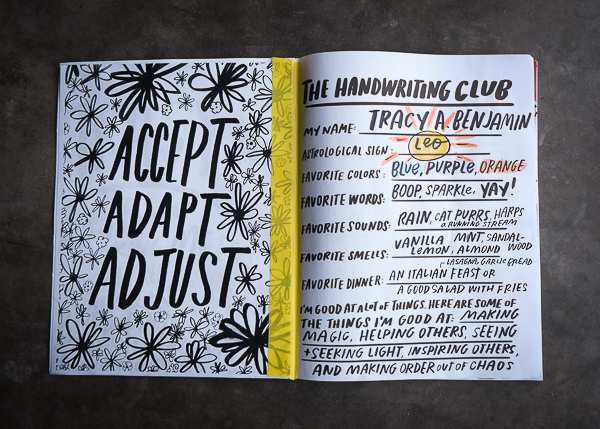 ACCEPT
ADAPT
ADJUST
THE HANDWRITING CLUB
MY NAME: TRACY A. BENJAMIN
ASTROLOGICAL SIGN: LEO
FAVORITE COLORS: BLUE, PURPLE, ORANGE
FAVORITE WORDS: BOOP, SPARKLE, YAY!
FAVORITE SOUNDS: RAIN, CAT PURRS, HARPS
a RUNNING STREAM
FAVORITE SMELLS: VANILLA MINT, SANDAL-
LEMON, ALMOND WOOD
LASAGNA, GARLIC BREAD
FAVORITE DINNER: AN ITALIAN FEAST OR
A GOOD SALAD WITH FRIES
I'M GOOD AT A LOT OF THINGS. HERE ARE SOME OF
THE THINGS I'M GOOD AT: MAKING
MAGIC, HELPING OTHERS, SEEING
+ SEEKING LIGHT, INSPIRING OTHERS,
AND MAKING ORDER OUT OF CHAOS